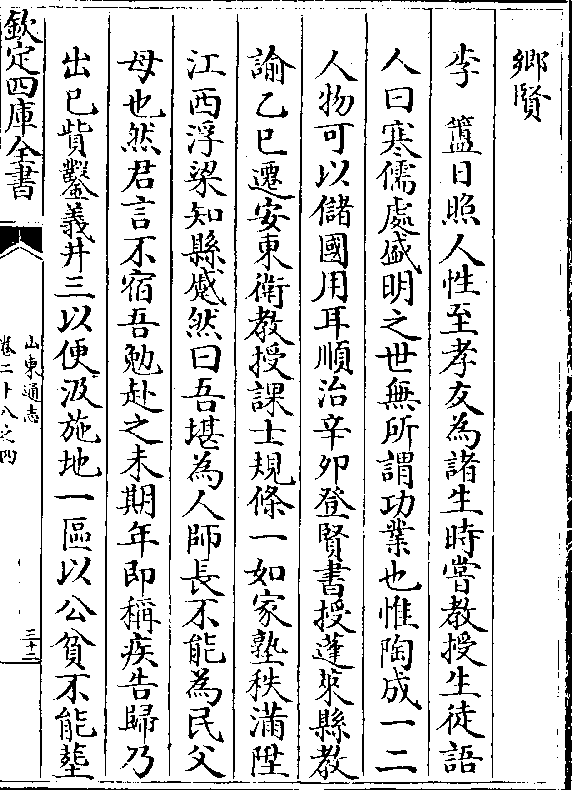 鄉賢
李　簠日照人性至孝友為諸生時嘗教授生徒語
人曰寒儒處盛明之世無所謂功業也惟陶成一二
人物可以儲國用耳順治辛卯登賢書授蓬萊縣教
諭乙巳遷安東衛教授課士規條一如家塾秩滿陞
江西浮梁知縣蹙然曰吾堪為人師長不能為民父
母也然君言不宿吾勉赴之未期年即稱疾告歸乃
出己貲鑿義井三以便汲施地一區以公貧不能塟
欽定四庫全書
山東通志
卷二十八之四
三十二